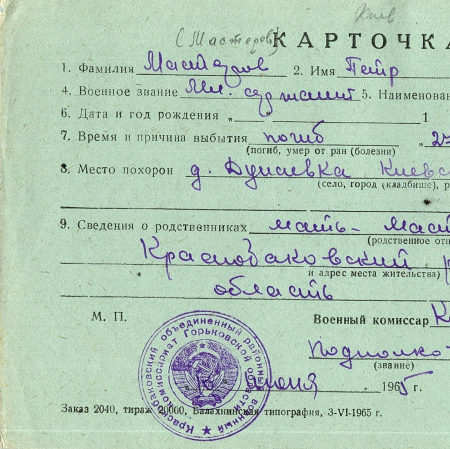 Киев
(Мастеров)
КАРТОЧКА
1. Фамилия Мастеров 2. Имя Петр
4. Военное звание Мл. сержант 5. Наименован
6. Дата и год рождения „ 1
7. Время и причина выбытия погиб „2
(погиб, умер от ран (болезни)
8. Место похорон д. Дунаевка Киевс
(село, город (кладбище), р
9. Сведения о родственниках мать - Маст
(родственное отн
Краснобаковский р
и адрес места жительства)
область
М. П. Военный комиссар К
Подполко
(звание)
июня 1965 г.
Краснобаковский объединенный районный военный
комиссариат Горьковской области
Заказ 2040, тираж 20000, Балахнинская типография, 3-VI-1965 г.